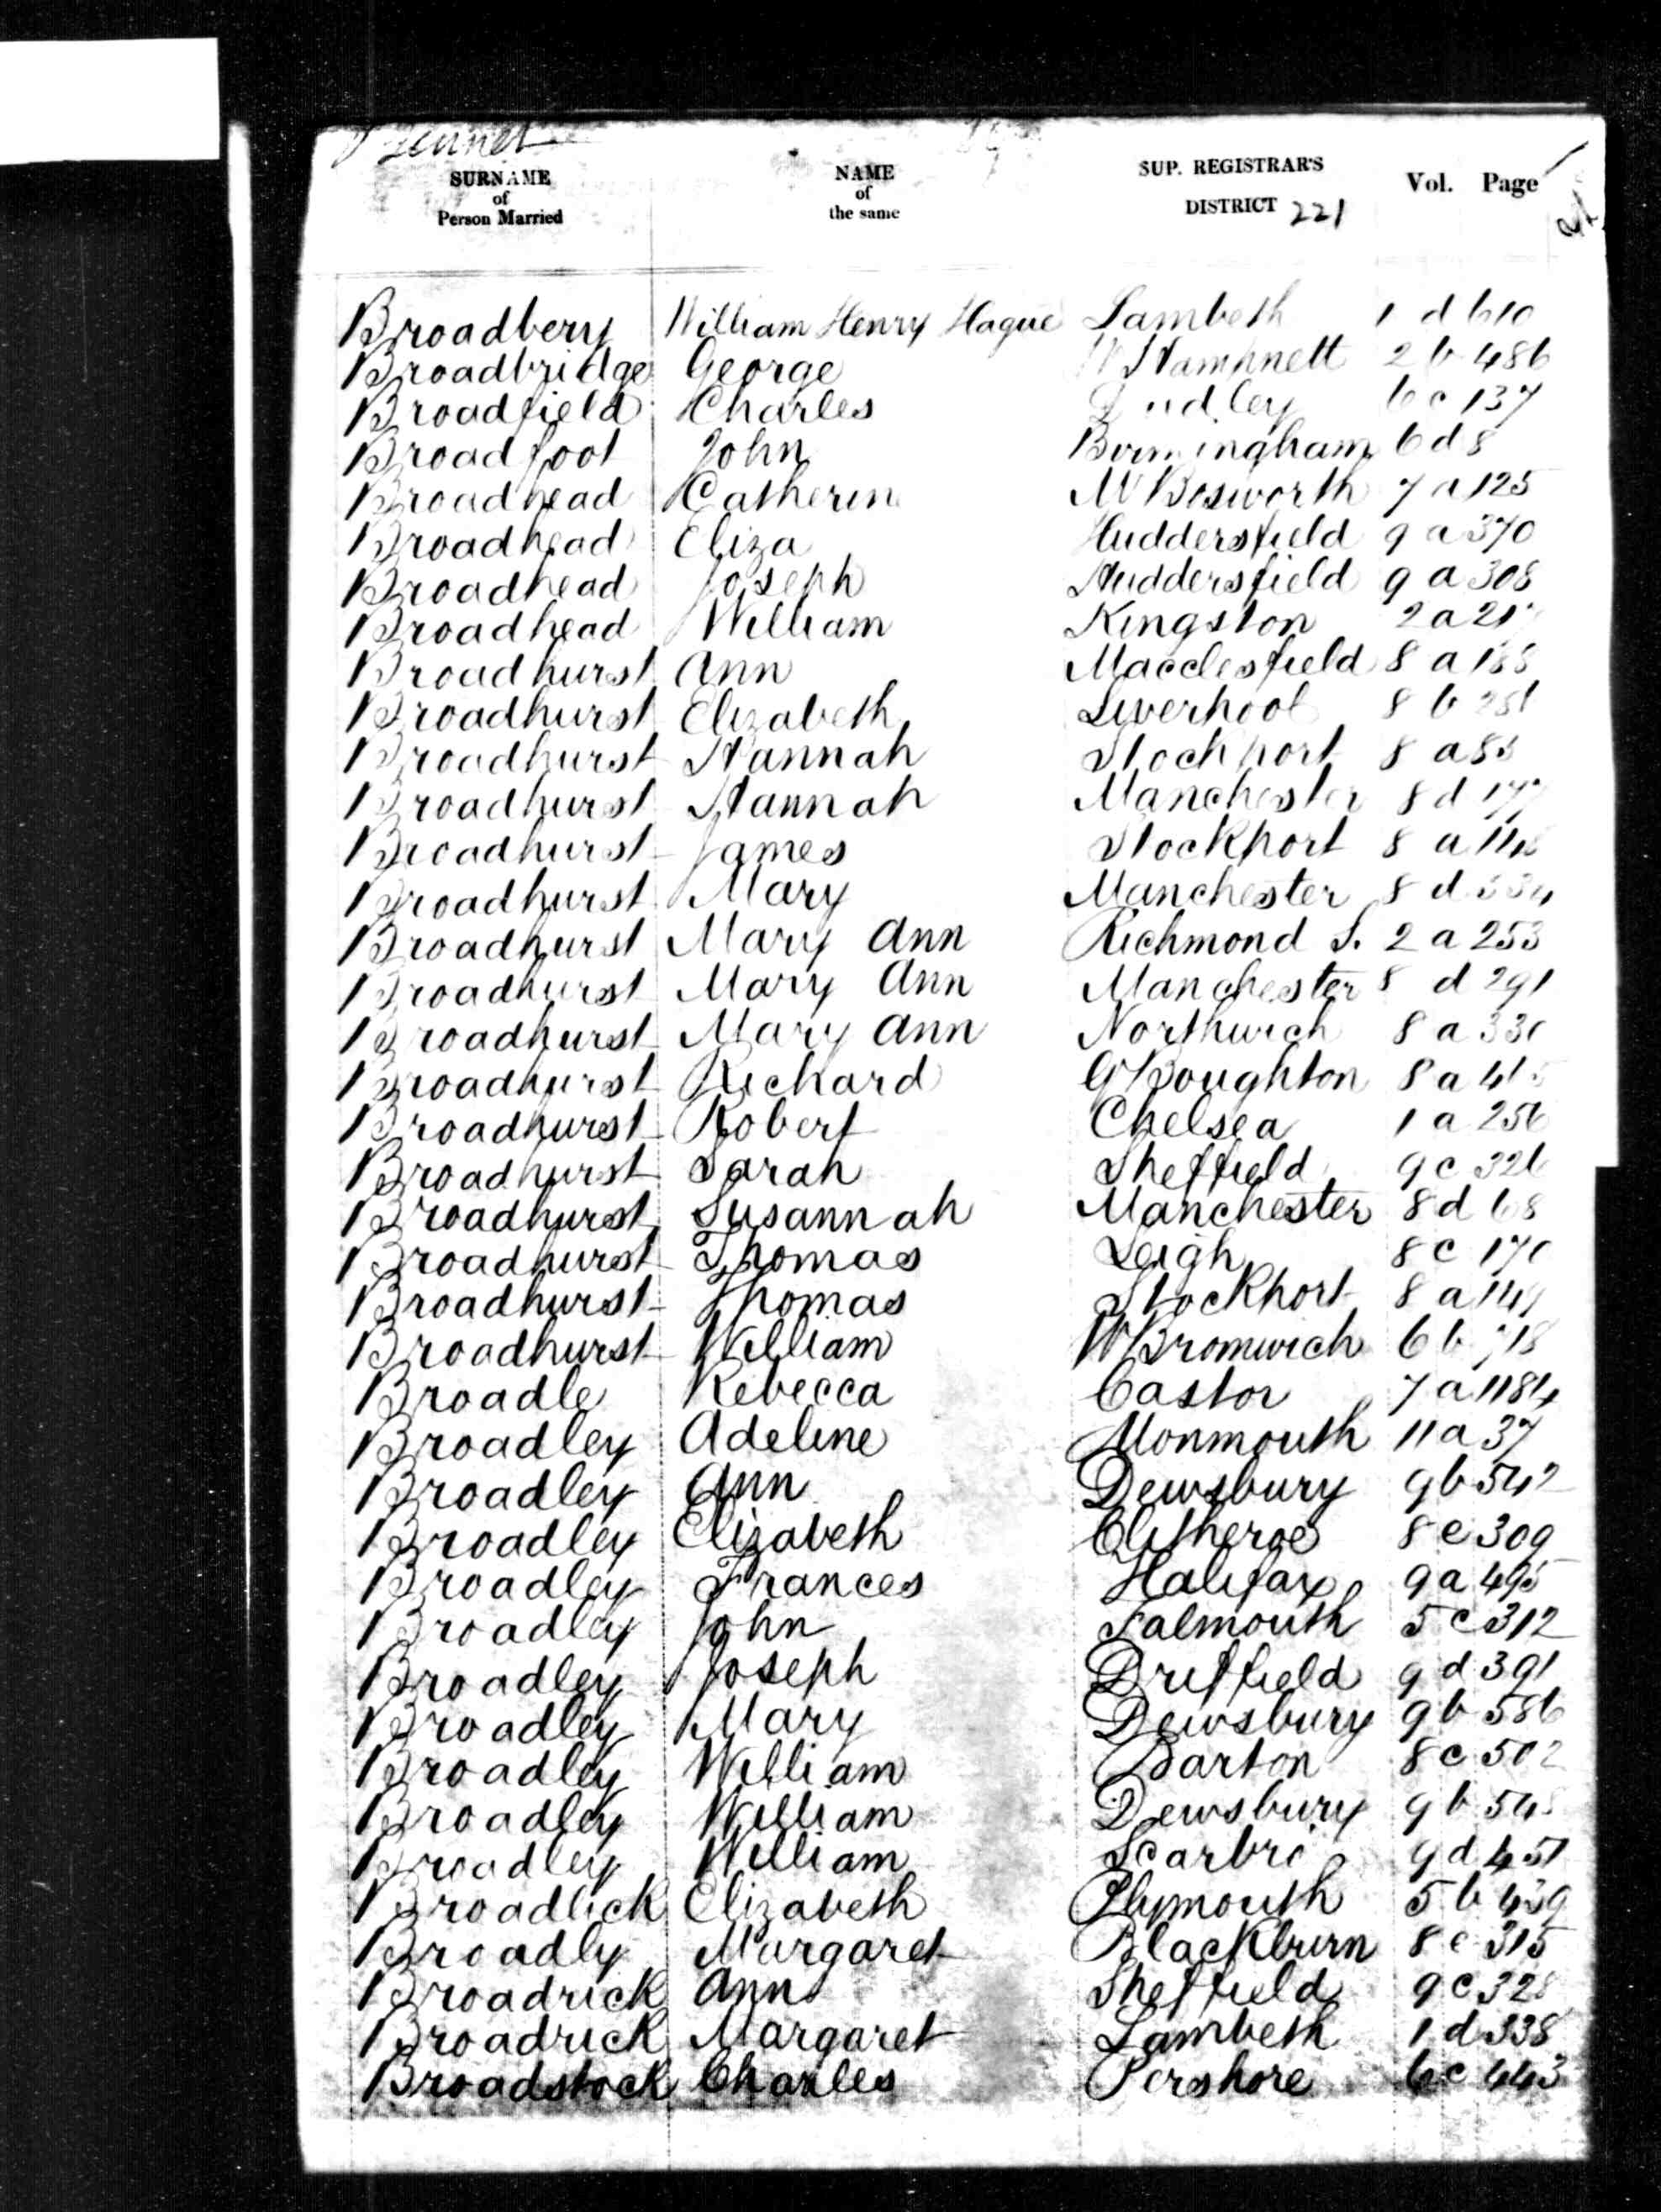 SURNAME of Person Married
NAME of the same
SUP. REGISTRAR'S DISTRICT 221
Vol. Page
Broadbery William Henry Hague Lambeth 1 d 610
Broadbridge George W Hampnett 2 b 486
Broadfield Charles Dudley 6 c 137
Broadfoot John Birmingham 6 d 8
Broadhead Catherin M Bosworth 7 a 125
Broadhead Eliza Huddersfield 9 a 370
Broadhead Joseph Huddersfield 9 a 308
Broadhead William Kingston 2 a
Broadhurst Ann Macclesfield 8 a
Broadhurst Elizabeth Liverpool 8 b
Broadhurst Hannah Stockport 8 a
Broadhurst Hannah Manchester 8 d
Broadhurst James Stockport 8 a
Broadhurst Mary Manchester 8 d
Broadhurst Mary Ann Richmond S. 2 a 253
Broadhurst Mary Ann Manchester 8 d 291
Broadhurst Mary Ann Northwich 8 a
Broadhurst Richard G Boughton 8 a
Broadhurst Robert Chelsea 1 a 256
Broadhurst Sarah Sheffield 9 c 326
Broadhurst Susannah Manchester 8 d 68
Broadhurst Thomas Leigh 8 c
Broadhurst Thomas Stockport 8 a
Broadhurst William W Bromwich 6 b
Broadle Rebecca Castor 7 a 1184
Broadley Adeline Monmouth 11 a 37
Broadley Ann Dewsbury 9 b 542
Broadley Elizabeth Clitheroe 8 e 309
Broadley Frances Halifax 9 a 495
Broadley John Falmouth 5 c 312
Broadley Joseph Driffield 9 d 391
Broadley Mary Dewsbury 9 b 586
Broadley William Barton 8 c 502
Broadley William Dewsbury 9 b
Broadley William Scarbro 9 d 451
Broadlick Elizabeth Plymouth 5 b 439
Broadly Margaret Blackburn 8 e 315
Broadrick Ann Sheffield 9 c 328
Broadrick Margaret Lambeth 1 d 338
Broadstock Charles Pershore 6 c 443